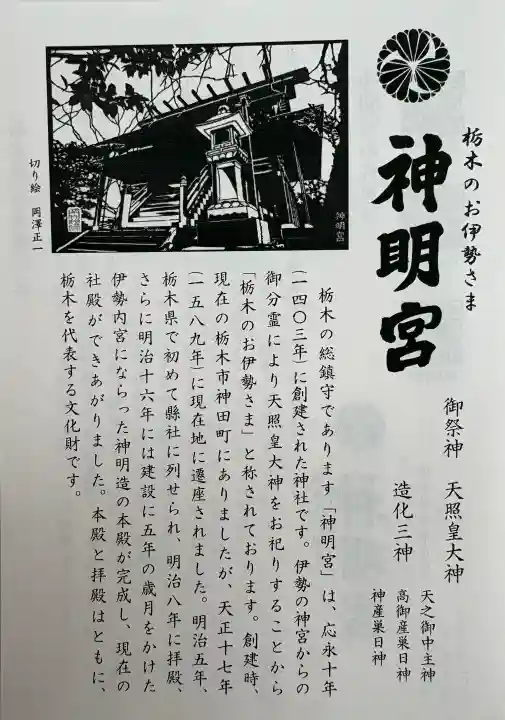 栃木のお伊勢さま
神明宮
御祭神　天照皇大神
造化三神
天之御中主神
高御産巣日神
神産巣日神
神明宮
切り絵　岡澤正一
栃木の総鎮守であります「神明宮」は、応永十年
(一四〇三年)に創建された神社です。伊勢の神宮からの
御分霊により天照皇大神をお祀りすることから
「栃木のお伊勢さま」と称されております。創建時、
現在の栃木市神田町にありましたが、天正十七年
(一五八九年)に現在地に遷座されました。明治五年、
栃木県で初めて縣社に列せられ、明治八年に拝殿、
さらに明治十六年には建設に五年の歳月をかけた
伊勢内宮にならった神明造の本殿が完成し、現在の
社殿ができあがりました。本殿と拝殿はともに、
栃木を代表する文化財です。